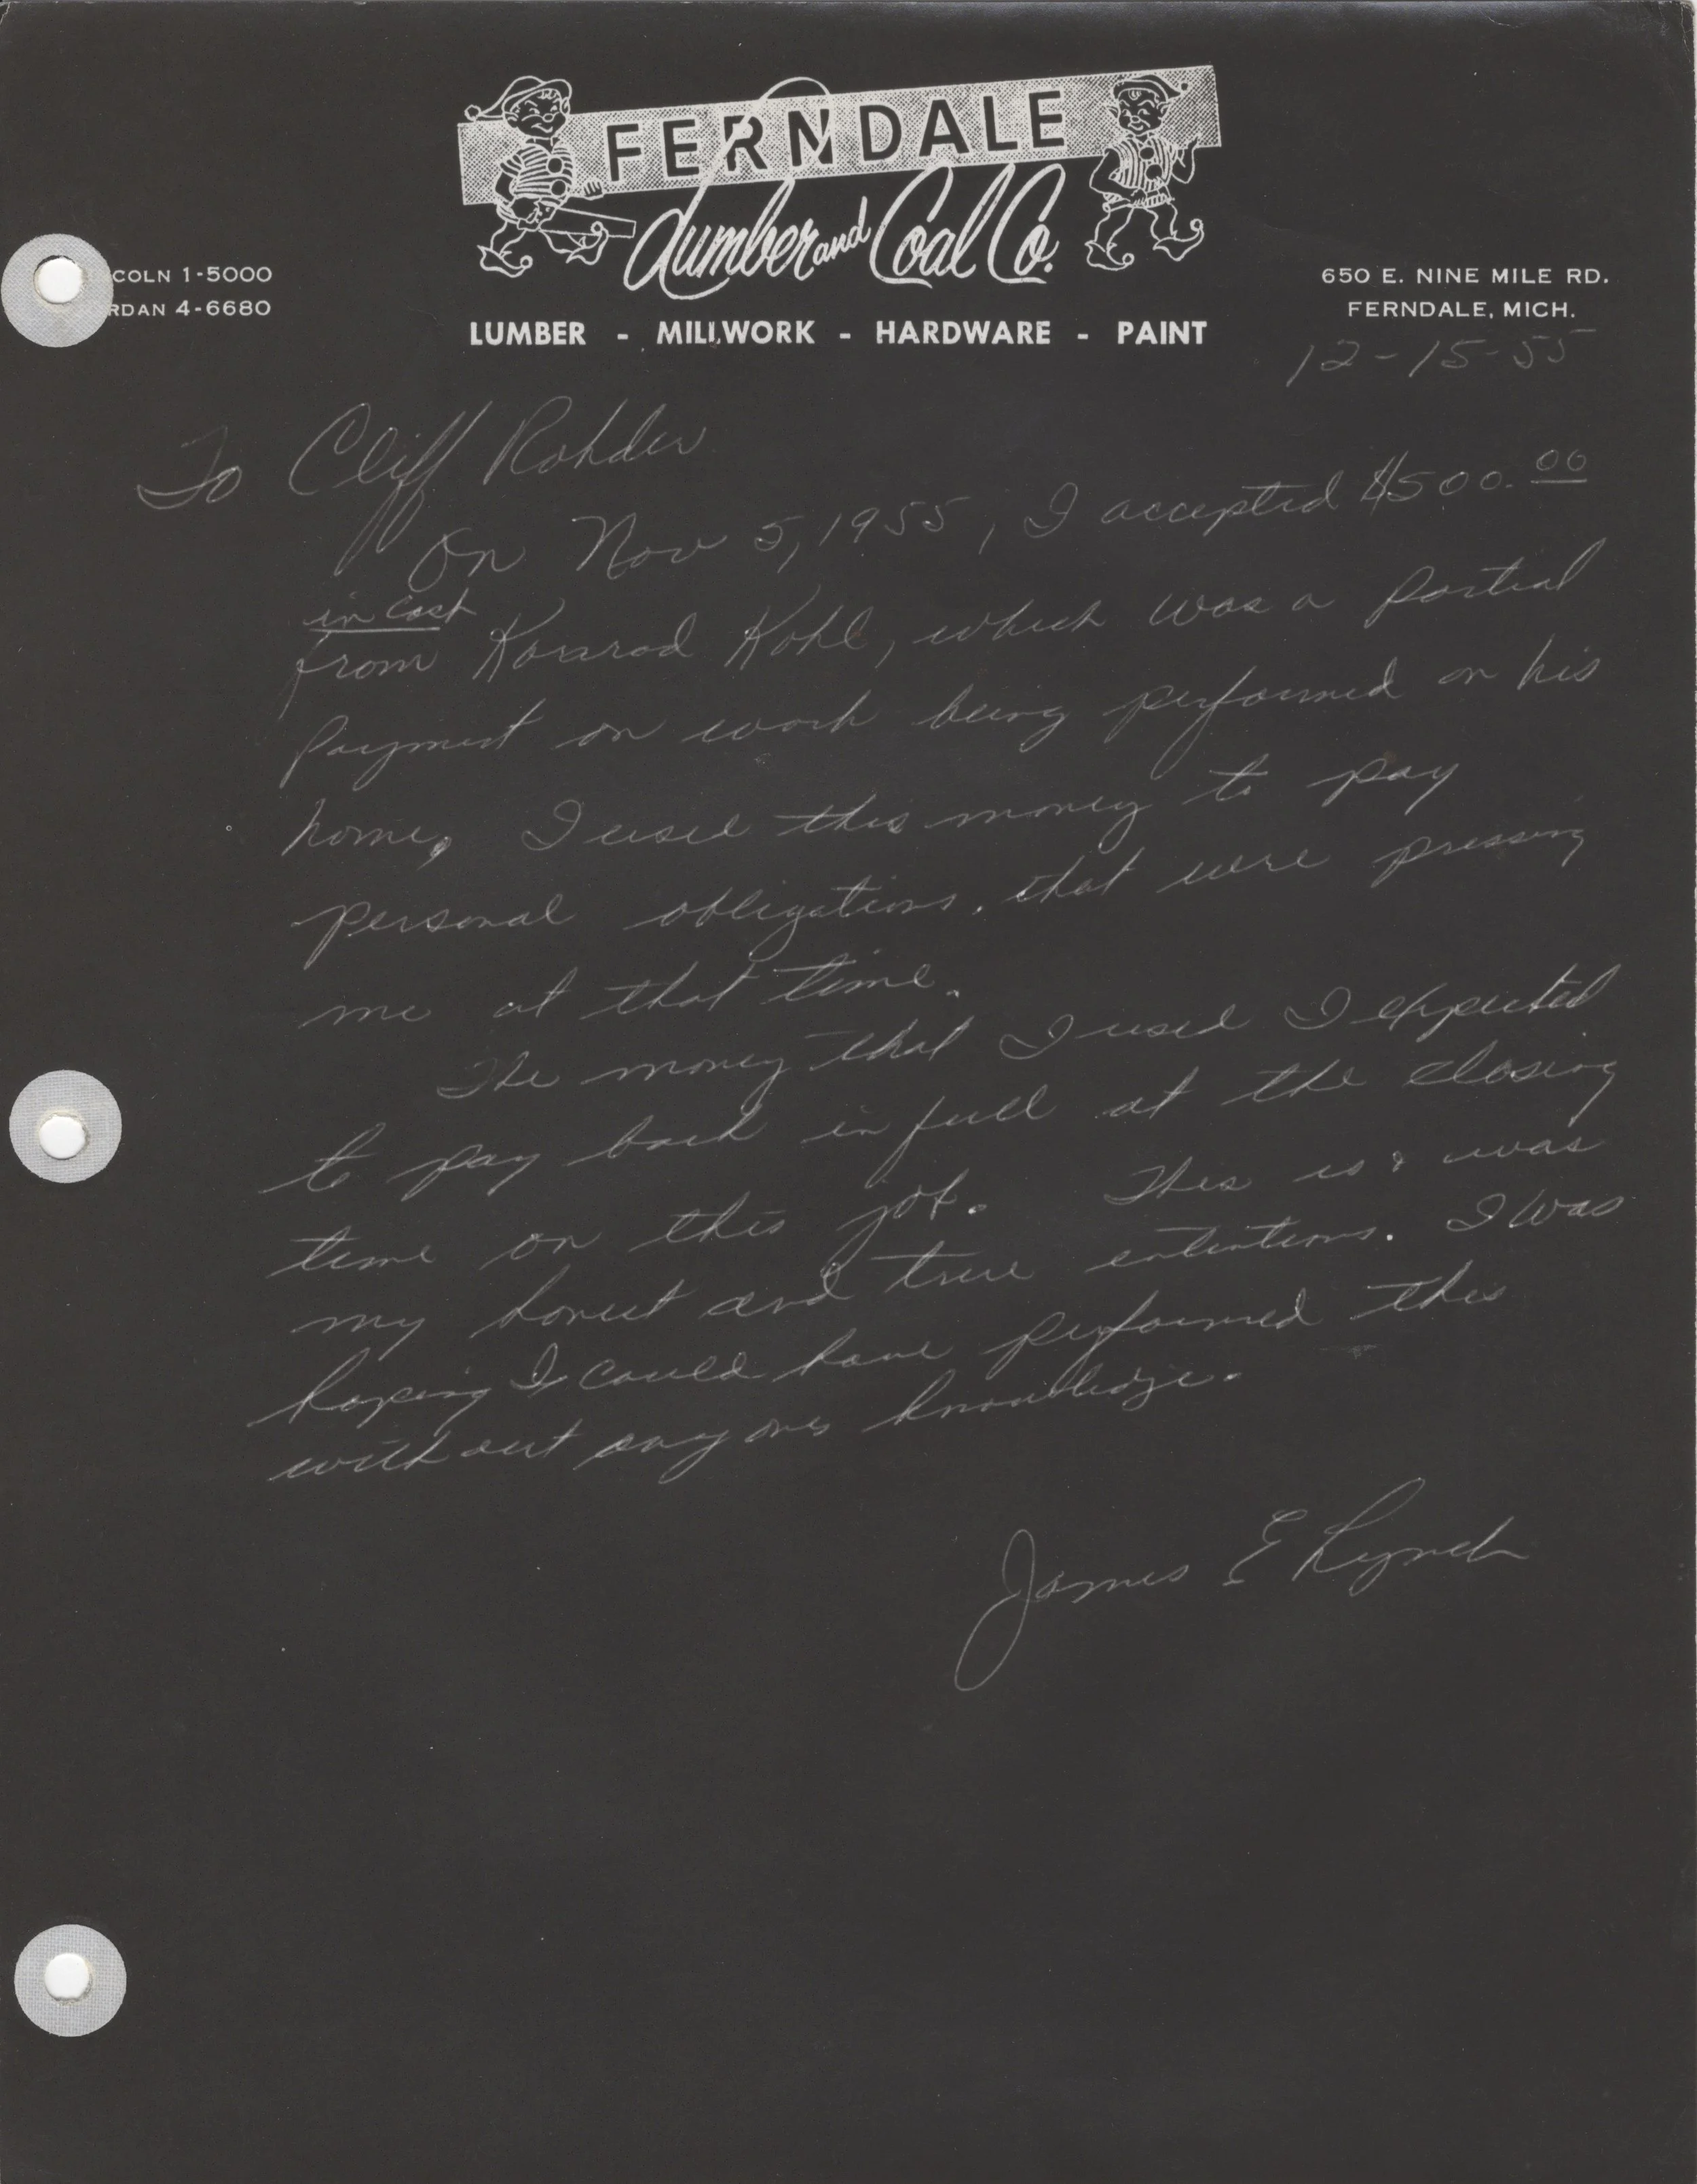 FERNDALE
Lumber and Coal Co.
COLN 1-5000
RDAN 4-6680
650 E. NINE MILE RD.
FERNDALE, MICH.
LUMBER - MILLWORK - HARDWARE - PAINT
12-15-55
To Cliff Rohder
On Nov 5, 1955, I accepted $500.00
in cash
from Konrad Kohl, which was a partial
payment on work being performed on his
home, I used this money to pay
personal obligations, that were pressing
me at that time.
The money that I used I expected
to pay back in full at the closing
time on this job. This is & was
my honest and true intentions. I was
hoping I could have performed this
without anyones knowledge.
James E Lynch